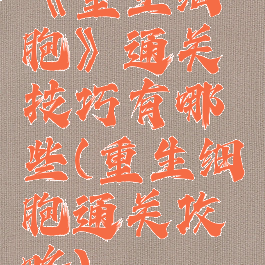 《重生细
胞》通关
技巧有哪
些(重生细
胞通关攻
略)